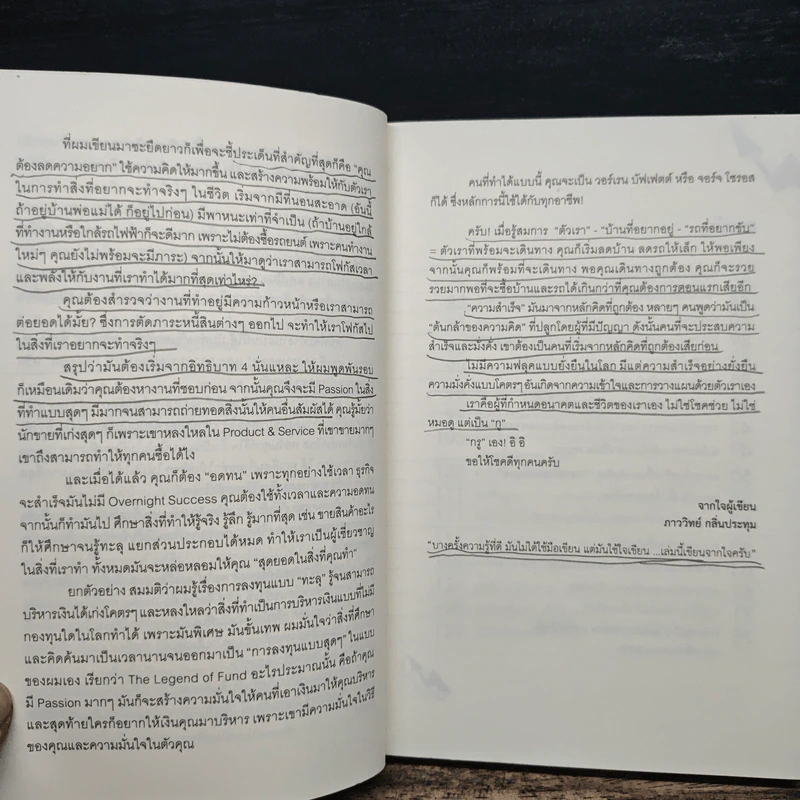 ที่ผมเขียนมาซะยืดยาวก็เพื่อจะชี้ประเด็นที่สำคัญที่สุดก็คือ "คุณ
ต้องลดความอยาก" ใช้ความคิดให้มากขึ้น และสร้างความพร้อมให้กับตัวเรา
ในการทำสิ่งที่อยากจะทำจริงๆ ในชีวิต เริ่มจากมีที่นอนสะอาด (อันนี้
ถ้าอยู่บ้านพ่อแม่ได้ ก็อยู่ไปก่อน) มีพาหนะเท่าที่จำเป็น (ถ้าบ้านอยู่ใกล้
ที่ทำงานหรือใกล้รถไฟฟ้าก็จะดีมาก เพราะไม่ต้องซื้อรถยนต์ เพราะคนทำงาน
ใหม่ๆ คุณยังไม่พร้อมจะมีภาระ) จากนั้นให้มาดูว่าเราสามารถโฟกัสเวลา
และพลังให้กับงานที่เราทำได้มากที่สุดเท่าไหร่?
คุณต้องสำรวจว่างานที่ทำอยู่มีความก้าวหน้าหรือเราสามารถ
ต่อยอดได้มั้ย? ซึ่งการตัดภาระหนี้สินต่างๆ ออกไป จะทำให้เราโฟกัสไป
ในสิ่งที่เราอยากจะทำจริงๆ
สรุปว่ามันต้องเริ่มจากอิทธิบาท 4 นั่นแหละ ให้ผมพูดพันรอบ
ก็เหมือนเดิมว่าคุณต้องหางานที่ชอบก่อน จากนั้นคุณจึงจะมี Passion ในสิ่ง
ที่ทำแบบสุดๆ มีมากจนสามารถถ่ายทอดสิ่งนั้นให้คนอื่นสัมผัสได้ คุณรู้มั้ยว่า
นักขายที่เก่งสุดๆ ก็เพราะเขาหลงใหลใน Product & Service ที่เขาขายมากๆ
เขาถึงสามารถทำให้ทุกคนซื้อได้ไง
และเมื่อได้แล้ว คุณก็ต้อง "อดทน" เพราะทุกอย่างใช้เวลา ธุรกิจ
จะสำเร็จมันไม่มี Overnight Success คุณต้องใช้ทั้งเวลาและความอดทน
จากนั้นก็ทำมันไป ศึกษาสิ่งที่ทำให้รู้จริง รู้ลึก รู้มากที่สุด เช่น ขายสินค้าอะไร
ก็ให้ศึกษาจนรู้ทะลุ แยกส่วนประกอบได้หมด ทำให้เราเป็นผู้เชี่ยวชาญ
ในสิ่งที่เราทำ ทั้งหมดมันจะหล่อหลอมให้คุณ "สุดยอดในสิ่งที่คุณทำ"
ยกตัวอย่าง สมมติว่าผมรู้เรื่องการลงทุนแบบ "ทะลุ" รู้จนสามารถ
บริหารเงินได้เก่งโคตรๆ และหลงใหลว่าสิ่งที่ทำเป็นการบริหารเงินแบบที่ไม่มี
กองทุนใดในโลกทำได้ เพราะมันพิเศษ มันขั้นเทพ ผมมั่นใจว่าสิ่งที่ศึกษา
และคิดค้นมาเป็นเวลานานจนออกมาเป็น "การลงทุนแบบสุดๆ" ในแบบ
ของผมเอง เรียกว่า The Legend of Fund อะไรประมาณนั้น คือถ้าคุณ
มี Passion มากๆ มันก็จะสร้างความมั่นใจให้คนที่เอาเงินมาให้คุณบริหาร
และสุดท้ายใครก็อยากให้เงินคุณมาบริหาร เพราะเขามีความมั่นใจในวิธี
ของคุณและความมั่นใจในตัวคุณ
คนที่ทำได้แบบนี้ คุณจะเป็น วอร์เรน บัฟเฟตต์ หรือ จอร์จ โซรอส
ก็ได้ ซึ่งหลักการนี้ใช้ได้กับทุกอาชีพ!
ครับ! เมื่อรู้สมการ "ตัวเรา" - "บ้านที่อยากอยู่" - "รถที่อยากขับ"
= ตัวเราที่พร้อมจะเดินทาง คุณก็เริ่มลดบ้าน ลดรถให้เล็ก ให้พอเพียง
จากนั้นคุณก็พร้อมที่จะเดินทาง พอคุณเดินทางถูกต้อง คุณก็จะรวย
รวยมากพอที่จะซื้อบ้านและรถได้เกินกว่าที่คุณต้องการตอนแรกเสียอีก
"ความสำเร็จ" มันมาจากหลักคิดที่ถูกต้อง หลายๆ คนพูดว่ามันเป็น
"ต้นกล้าของความคิด" ที่ปลูกโดยผู้ที่มีปัญญา ดังนั้นคนที่จะประสบความ
สำเร็จและมั่งคั่ง เขาต้องเป็นคนที่เริ่มจากหลักคิดที่ถูกต้องเสียก่อน
ไม่มีความฟลุคแบบยั่งยืนในโลก มีแต่ความสำเร็จอย่างยั่งยืน
ความมั่งคั่งแบบโคตรๆ อันเกิดจากความเข้าใจและการวางแผนด้วยตัวเราเอง
เราคือผู้ที่กำหนดอนาคตและชีวิตของเราเอง ไม่ใช่โชคช่วย ไม่ใช่
หมอดู แต่เป็น "กู"
"กรู" เอง! อิ อิ
ขอให้โชคดีทุกคนครับ
จากใจผู้เขียน
ภาววิทย์ กลิ่นประทุม
"บางครั้งความรู้ที่ดี มันไม่ได้ใช้มือเขียน แต่มันใช้ใจเขียน ...เล่มนี้เขียนจากใจครับ"